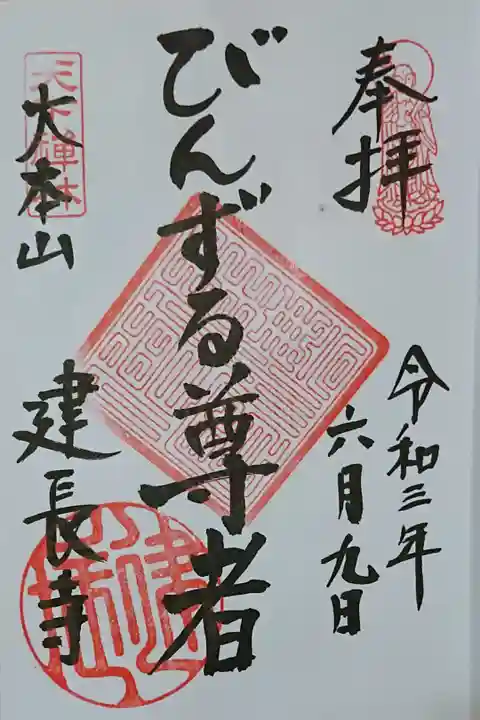 奉拝
令和三年
六月九日
びんずる尊者
天下禅林
大本山
建長寺